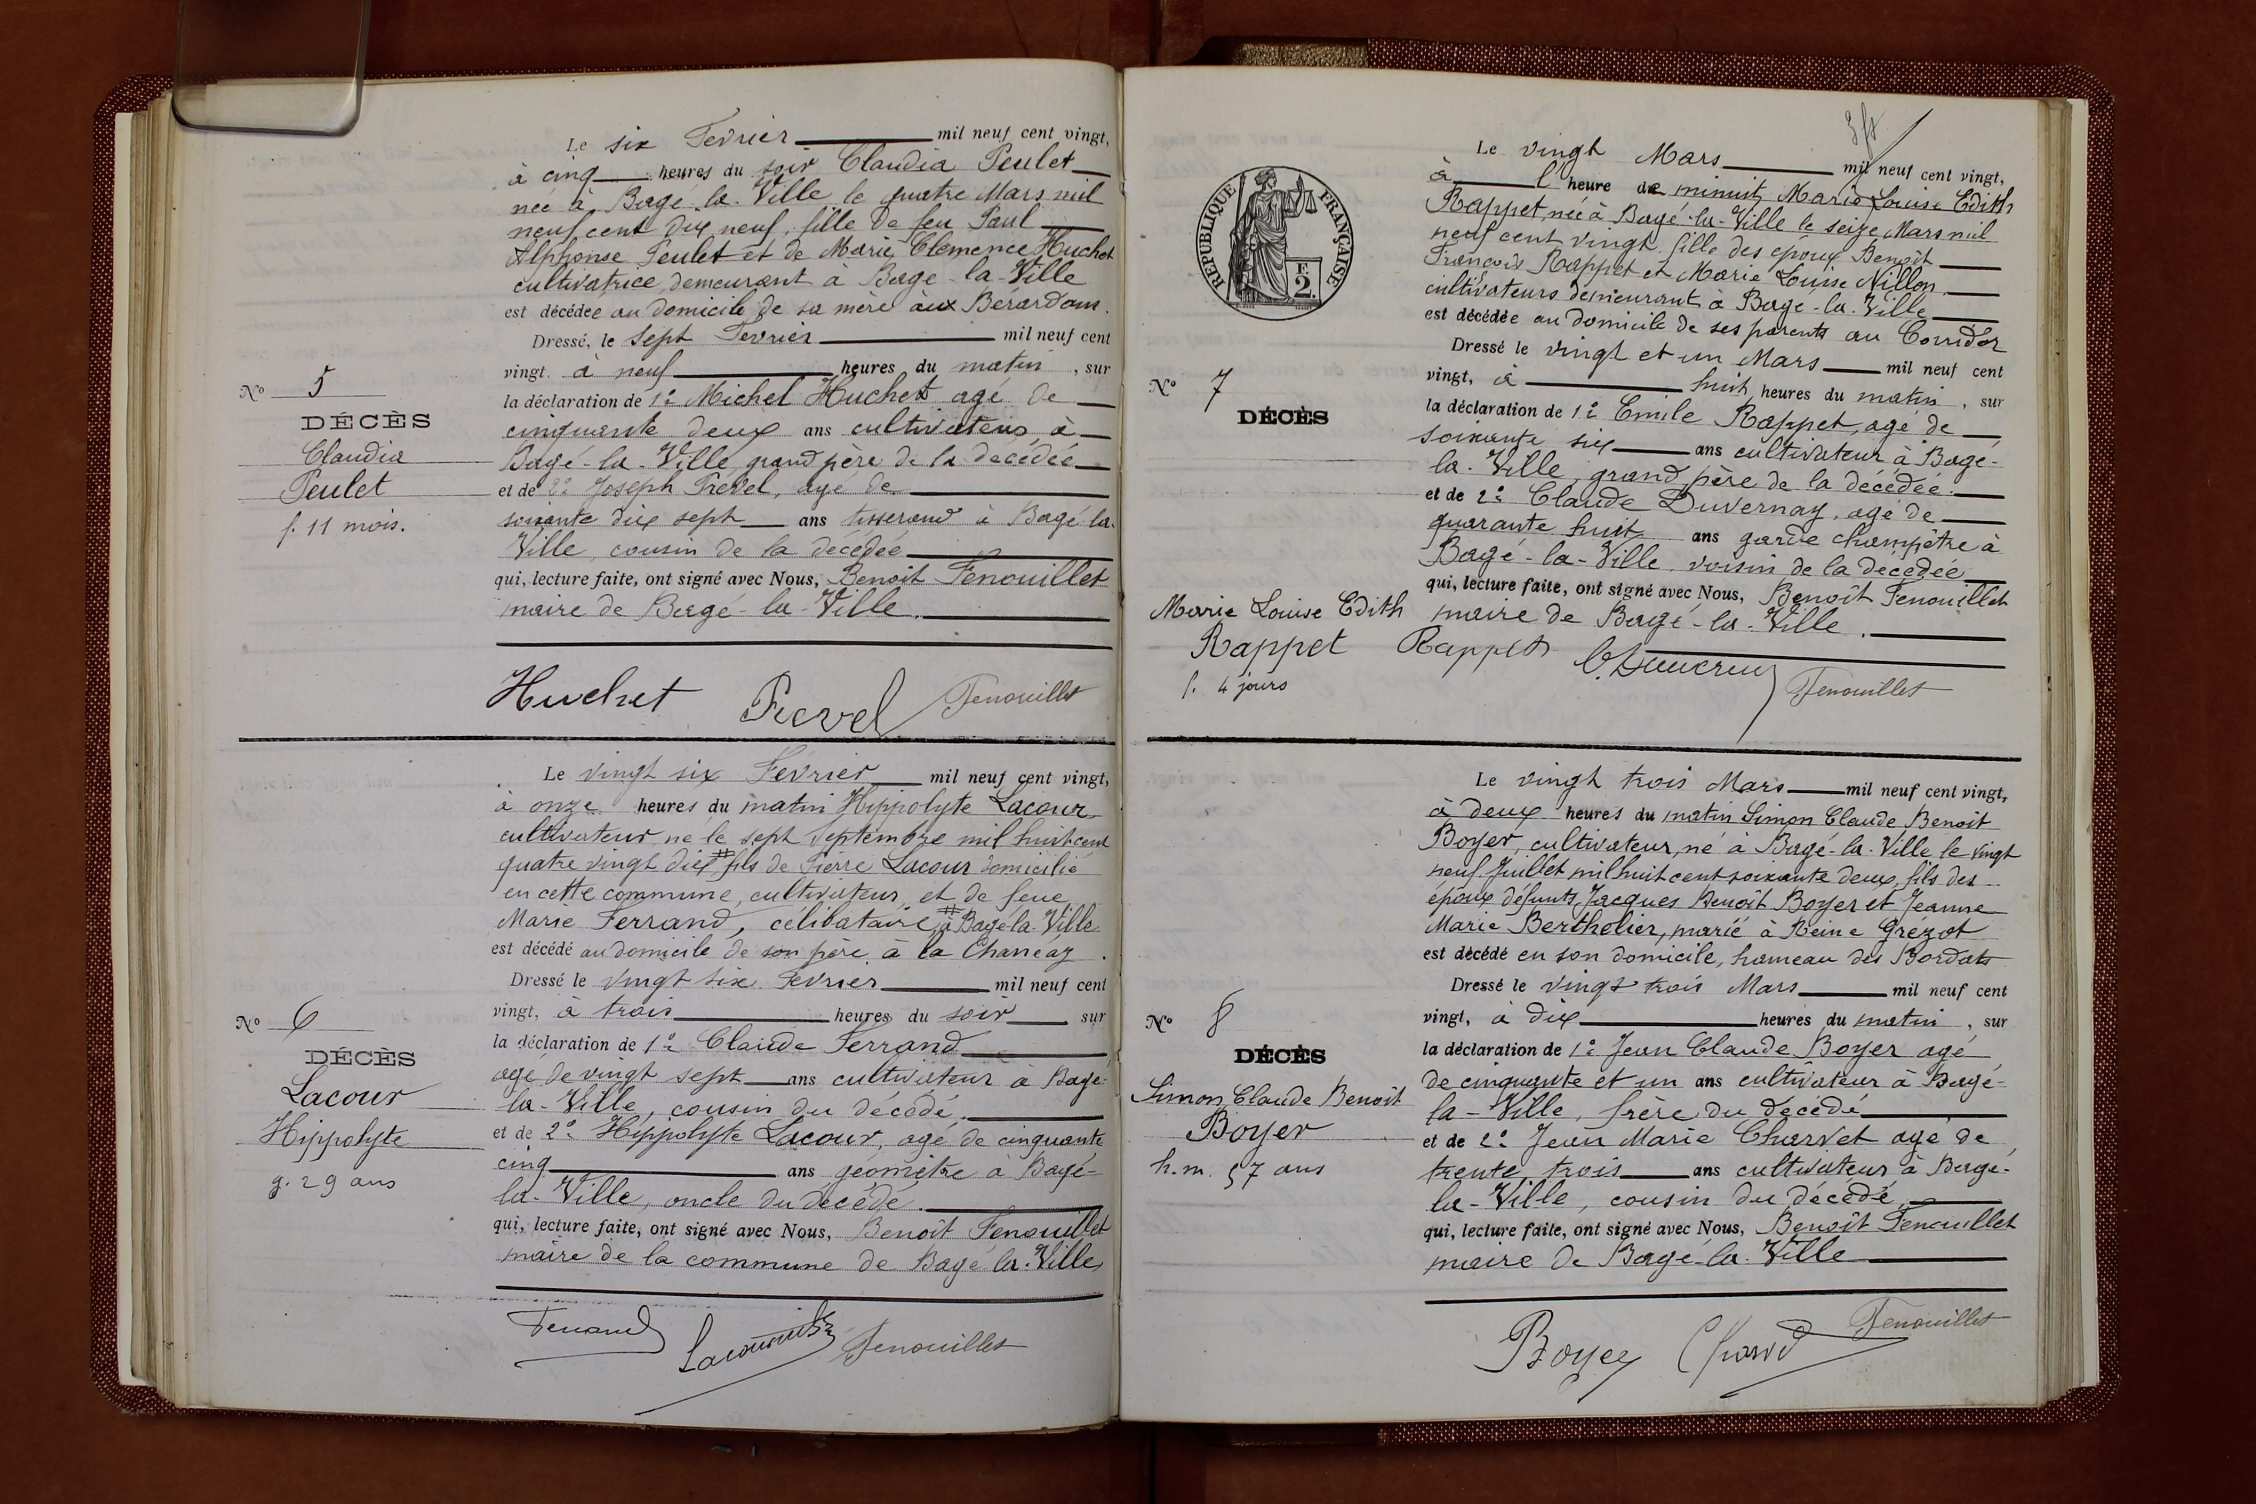 Le six Fevrier mil neuf cent vingt,
à cinq heures du soir Claudia Peulet
née à Bagé-la-Ville le quatre Mars mil
neuf cent dix neuf, fille de feu Paul
Alphonse Peulet et de Marie Clemence Huchet
cultivatrice, demeurant à Bage-la-Ville
est décédée au domicile de sa mère aux Berardans.
Dressé, le sept Fevrier mil neuf cent
vingt à neuf heures du matin, sur
la déclaration de 1º Michel Huchet agé de
cinquante deux ans cultivateur, à
Bagé-la-Ville, grand père de la decédée
et de 2º Joseph Prevel, agé de
soixante dix sept ans tisserand à Bagé-la-
Ville, cousin de la décédée
qui, lecture faite, ont signé avec Nous, Benoit Fenouillet
maire de Bagé-la-Ville.
Nº 5
DÉCÈS
Claudia
Peulet
f. 11 mois.
Huchet Prevel Fenouillet
Le vingt six Fevrier mil neuf cent vingt,
à onze heures du matin Hippolyte Lacour
cultivateur né le sept Septembre mil huit cent
quatre vingt dix # fils de Pierre Lacour domicilié
en cette commune, cultivateur, et de feue
Marie Ferrand, célibataire, # à Bagé-la-Ville
est décédé au domicile de son père à la Chanéaz.
Dressé le vingt six Fevrier mil neuf cent
vingt, à trois heures du soir sur
la déclaration de 1º Claude Ferrand
agé de vingt sept ans cultivateur à Bagé-
la-Ville, cousin du décédé.
et de 2º Hippolyte Lacour, agé de cinquante
cinq ans géomètre à Bagé-
la-Ville, oncle du decédé.
qui, lecture faite, ont signé avec Nous, Benoit Fenouillet
maire de la commune de Bagé la-Ville
Nº 6
DÉCÈS
Lacour
Hippolyte
g. 29 ans
Ferrand Lacour Fenouillet
RÉPUBLIQUE FRANÇAISE
F.
2.
Le vingt Mars mil neuf cent vingt,
à l'heure de minuit, Marie Louise Edith
Rappet, née à Bagé-la-Ville le seize Mars mil
neuf cent vingt, fille des époux Benoit
François Rappet et Marie Louise Nillon
cultivateurs demeurant à Bage-la-Ville
est décédée au domicile de ses parents au Corridor
Dressé le vingt et un Mars mil neuf cent
vingt, à huit heures du matin, sur
la déclaration de 1º Emile Rappet, agé de
soixante six ans cultivateur à Bagé-
la-Ville, grand père de la décédée.
et de 2º Claude Duvernay, agé de
quarante huit ans garde champêtre à
Bagé-la-Ville voisin de la decédée
qui, lecture faite, ont signé avec Nous, Benoit Fenouillet
maire de Bagé-la-Ville.
Nº 7
DÉCÈS
Marie Louise Edith
Rappet
f. 4 jours
Rappet C. Duvernay Fenouillet
Le vingt trois Mars mil neuf cent vingt,
à deux heures du matin Simon Claude Benoit
Boyer, cultivateur, né à Bagé-la-Ville le vingt
neuf Juillet mil huit cent soixante deux, fils des
époux défunts Jacques Benoît Boyer et Jeanne
Marie Berthelier, marié à Reine Grézot
est décédé en son domicile, hameau des Bordats
Dressé le vingt trois Mars mil neuf cent
vingt, à dix heures du matin, sur
la déclaration de 1º Jean Claude Boyer agé
de cinquante et un ans cultivateur à Bagé-
la-Ville, frère du decédé
et de 2º Jean Marie Charvet agé de
trente trois ans cultivateur à Bagé-
la-Ville, cousin du décédé
qui, lecture faite, ont signé avec Nous, Benoit Fenouillet
maire de Bagé-la-Ville
Nº 8
DÉCÈS
Simon Claude Benoit
Boyer
h.m. 57 ans
Boyer Charvet Fenouillet